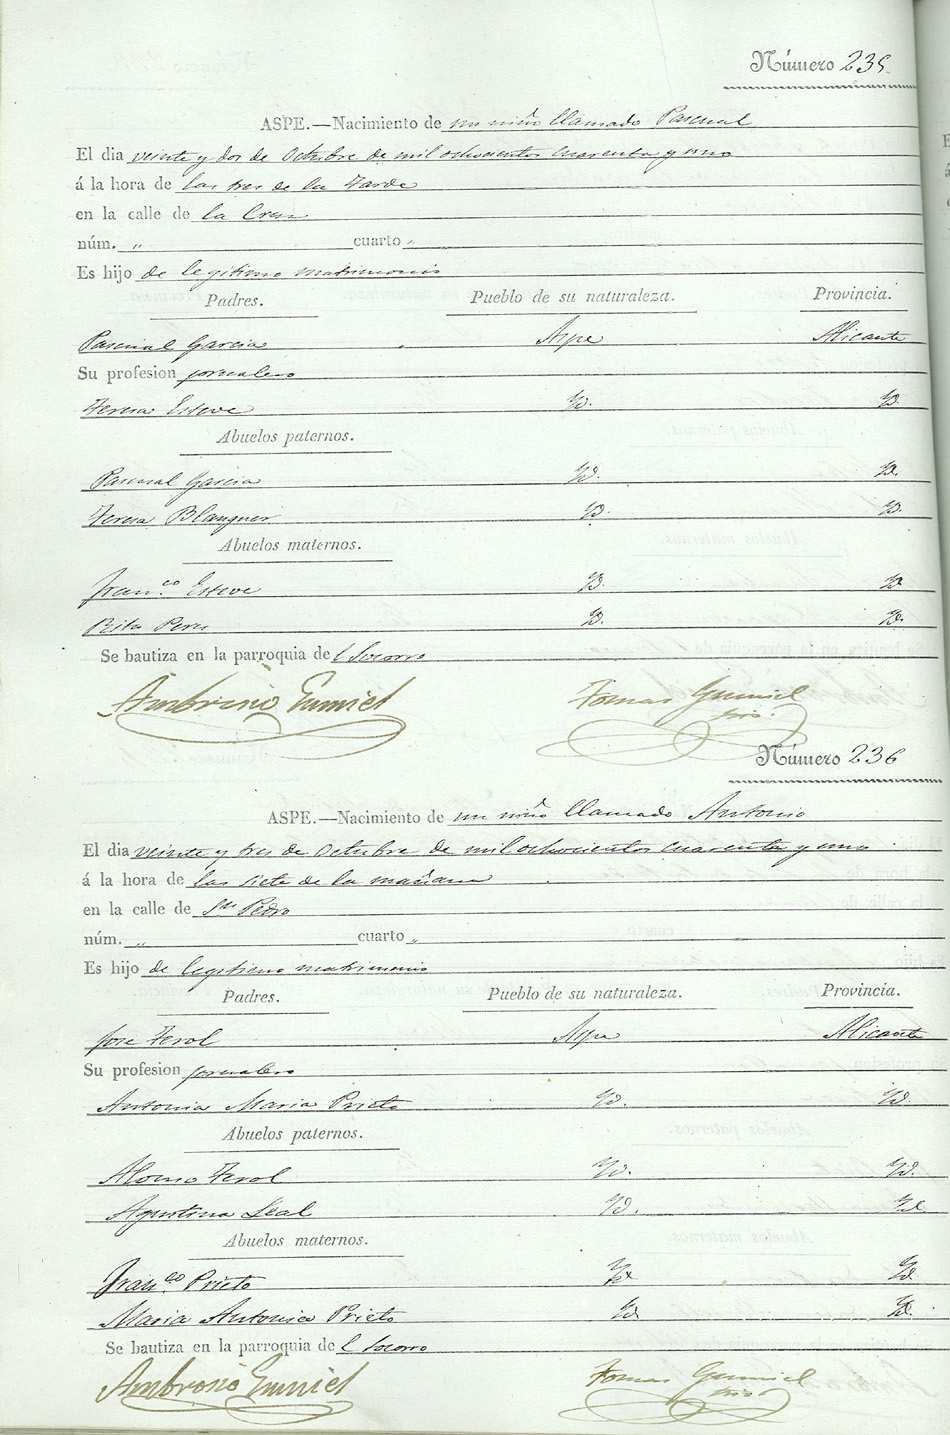 Número 235.
ASPE.—Nacimiento de un niño llamado Pascual
El dia veinte y dos de Octubre de mil ochocientos cuarenta y uno
á la hora de las tres de la Tarde
en la calle de la Cruz
núm. „ cuarto „
Es hijo de legitimo matrimonio
Padres. Pueblo de su naturaleza. Provincia.
Pascual Garcia Aspe Alicante
Su profesion jornalero
Teresa Esteve Yd. Yd.
Abuelos paternos.
Pascual Garcia Yd. Yd.
Teresa Blanquer Yd. Yd.
Abuelos maternos.
Fran.co Esteve Yd. Yd.
Rita Peres Yd. Yd.
Se bautiza en la parroquia del Socorro
Ambrosio Gumiel Tomas Gumiel
Número 236
ASPE.—Nacimiento de un niño llamado Antonio
El dia veinte y tres de Octubre de mil ochocientos cuarenta y uno
á la hora de las siete de la mañana
en la calle de Sn Pedro
núm. „ cuarto „
Es hijo de legitimo matrimonio
Padres. Pueblo de su naturaleza. Provincia.
Jose Terol Aspe Alicante
Su profesion jornalero
Antonia Maria Prieto Yd. Yd.
Abuelos paternos.
Alonso Terol Yd. Yd.
Agustina Leal Yd. Yd.
Abuelos maternos.
Fran.co Prieto Yd Yd
Maria Antonia Prieto Yd Yd.
Se bautiza en la parroquia del Socorro
Ambrosio Gumiel Tomas Gumiel